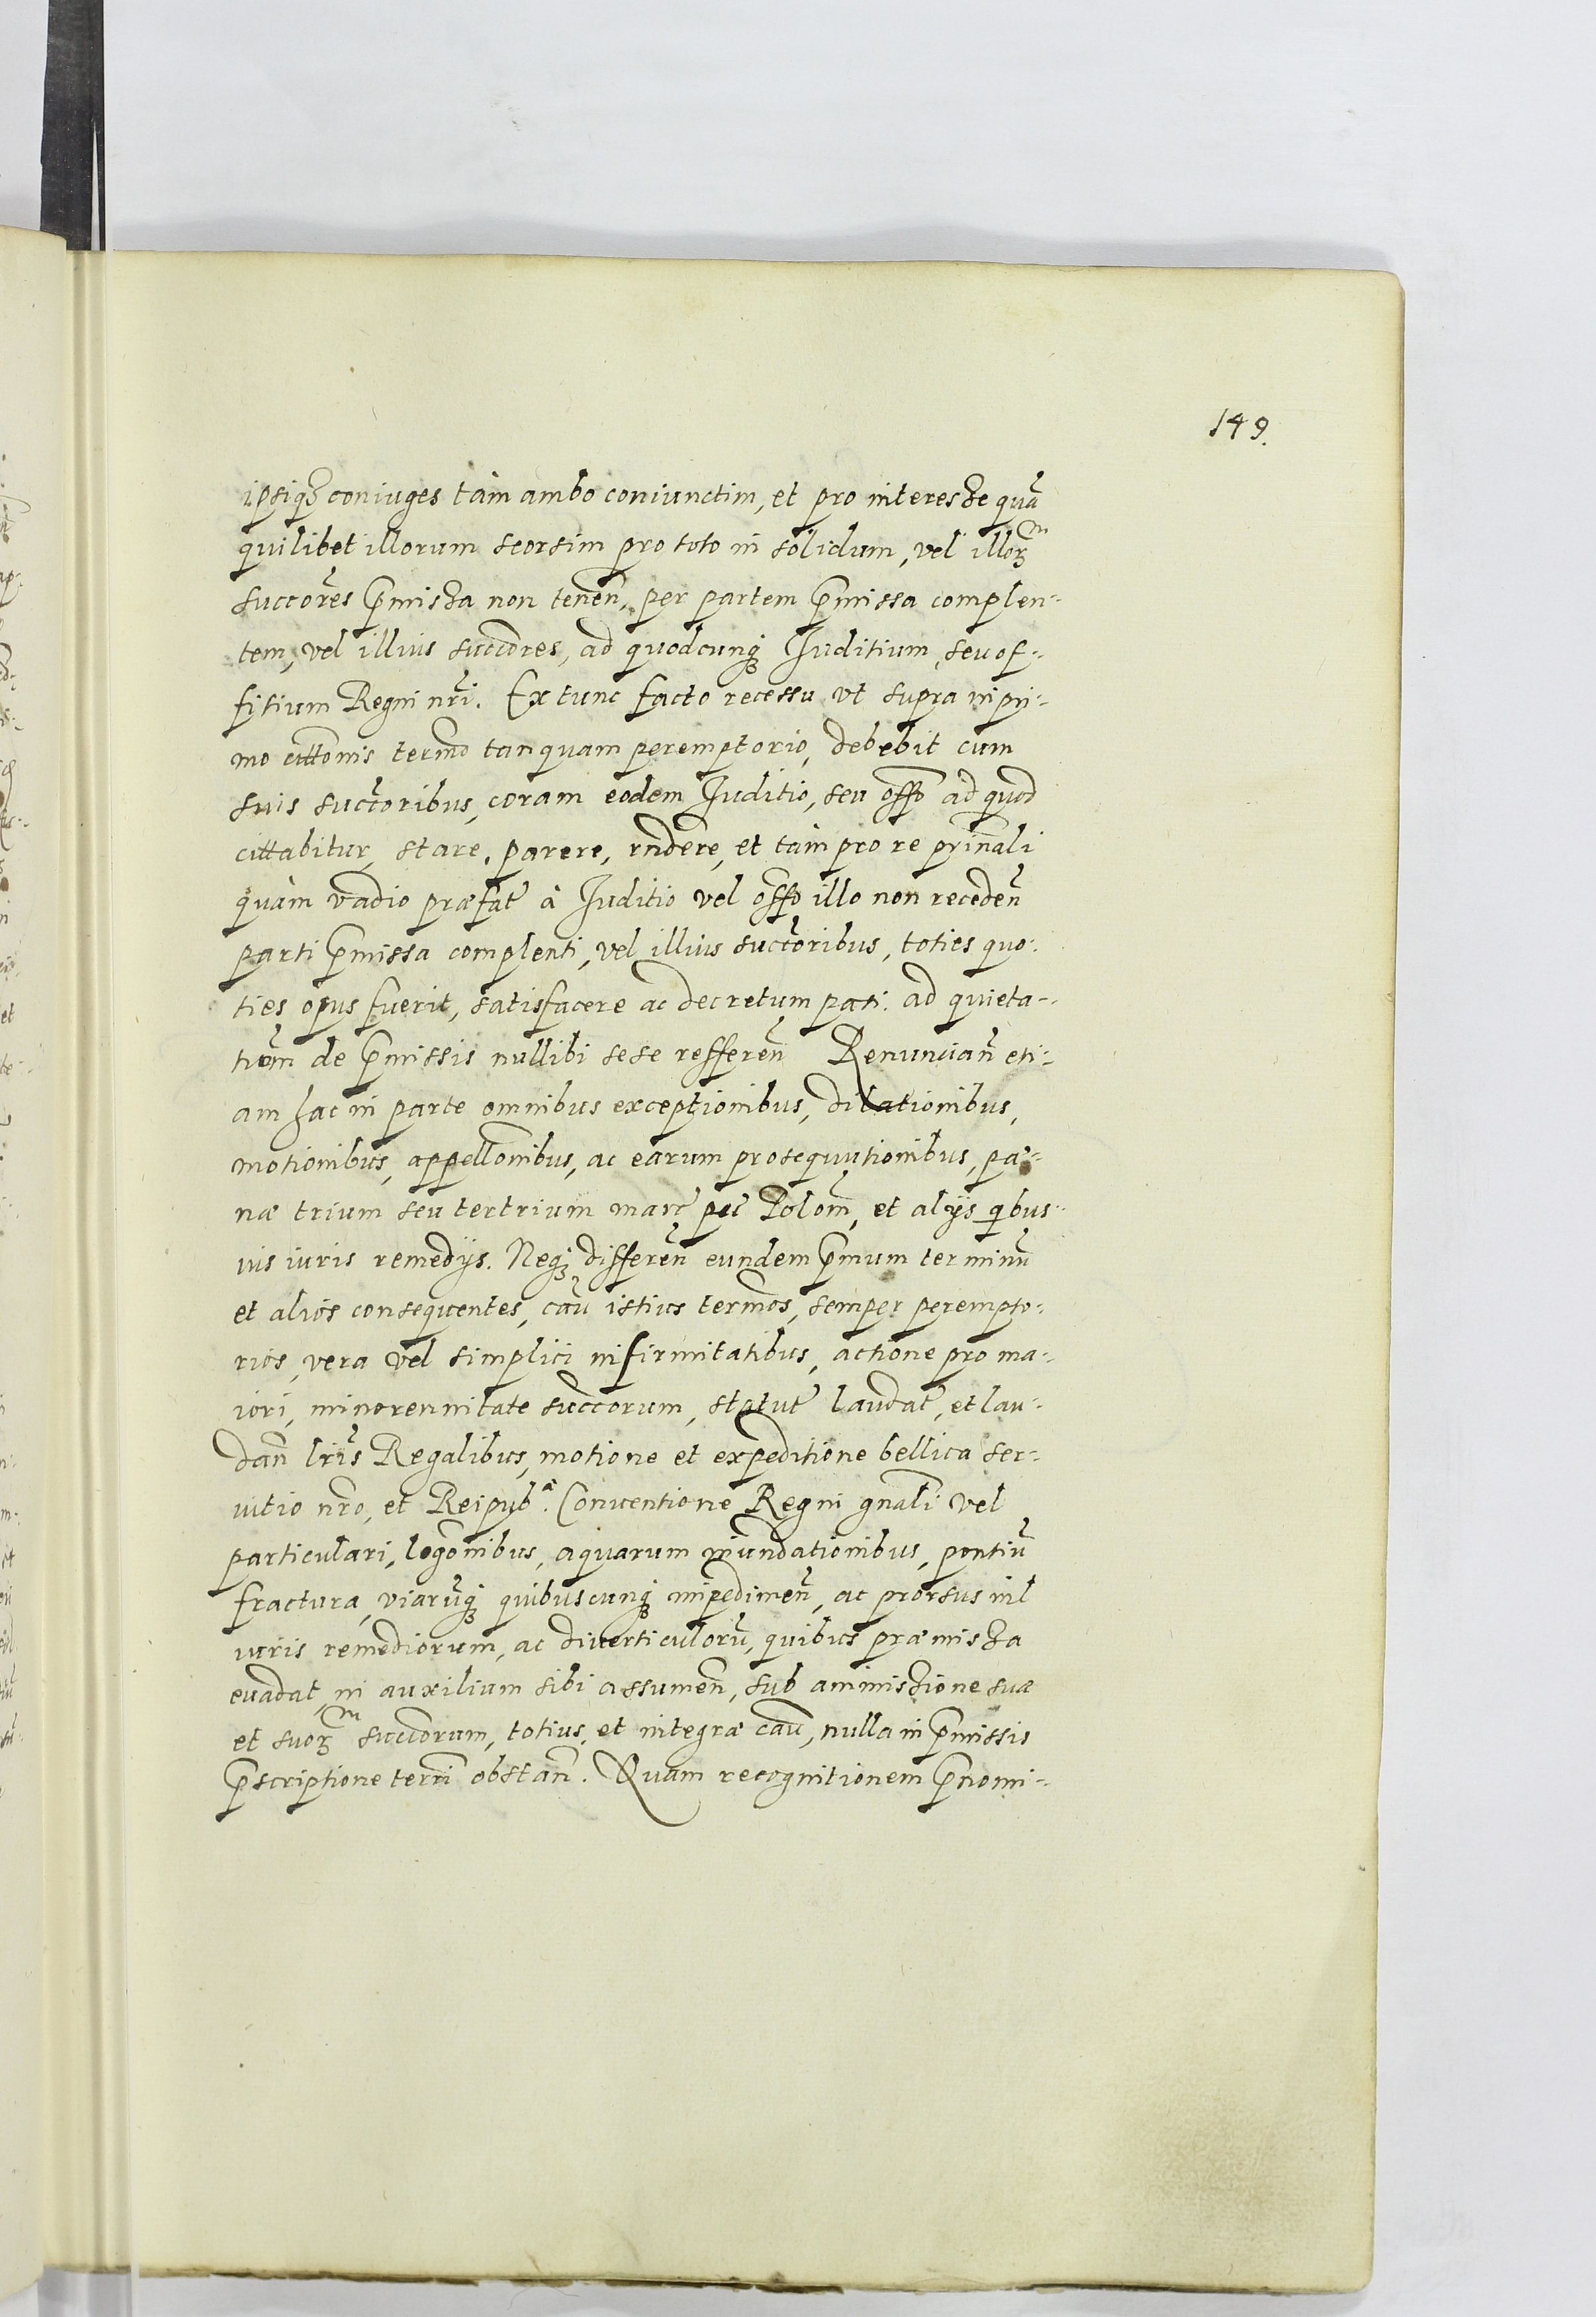 149.
ipsiqꝫ coniuges tàm ambo coniunctim, et pro interesse quā
quilibet illorum seorsim pro toto in solidum, vel illoꝝm
succōres p̄missa non tenen̄, per partem p̄missa complen-
tem, vel illius succōres, ad quodcunqꝫ Iuditium, seu of-
fitium Regni nr̄i. Extunc facto recessu vt supra in pri-
mo cittōnis term̄o tanquam peremptorio, debebit cum
suis succōribus, coram eodem Iuditio, seu off̄o ad quod
cittabitur, stare, parere, rn̄dere, et tàm pro re prin̄ali
quàm vadio præfat̄ à Iuditio vel off̄o illo non receden̄
parti p̄missa complenti, vel illius succōribus, toties quo-
ties opus fuerit, satisfacere ac decretum pati. ad quieta-
tiōm de p̄missis nullibi sese refferen̄ Renuncian̄ eti-
am hac in parte omnibus exceptionibus, dilationibus,
motionibus, appellōnibus, ac earum prosequutionibus, pæ-
næ trium seu tertrium marc̄ pec̄ Polon̄, et alijs qibus-
uis iuris remedijs. Neqꝫ differen̄ eundem p̄mum terminū
et alios consequentes, cāu istius term̄os, semper perempto-
rios, vera vel simplici infirmitatibus, actione pro ma-
iori, minorennitate succōrum, statut̄ laudat̄, et lau-
dan̄ lr̄is Regalibus, motione et expeditione bellica ser-
uitio nr̄o, et Reipub.ᵃ Conuentione Regni gn̄ali vel
particulari, legōnibus, aquarum inundationibus, pontiū
fractura, viarūqꝫ quibuscunqꝫ impedimen̄, ac prorsus nil
iuris remediorum, ac diuerticulorū, quibus præmissa
euadat, in auxilium sibi assumen̄, sub ammissione suæ
et suoꝝm succōrum, totius, et integræ cāu, nulla in p̄missis
p̄scriptione terr̄i obstan̄. Quam recognitionem p̄nomi-